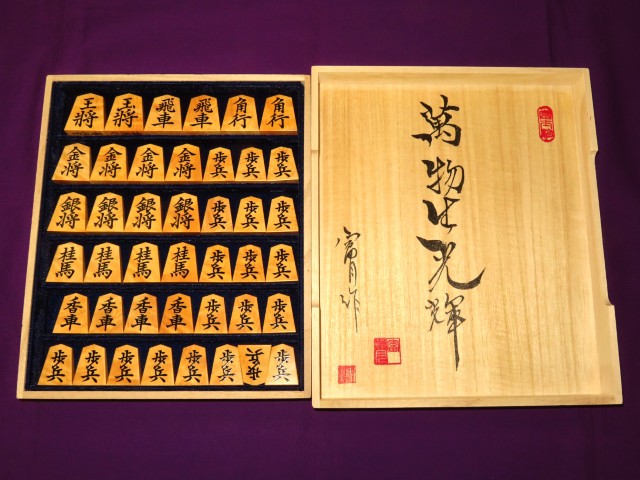 王將 玉將 飛車 飛車 角行 角行
金將 金將 金將 金將 歩兵 歩兵 歩兵
銀將 銀將 銀將 銀將 歩兵 歩兵 歩兵
桂馬 桂馬 桂馬 桂馬 歩兵 歩兵 歩兵
香車 香車 香車 香車 歩兵 歩兵 歩兵
歩兵 歩兵 歩兵 歩兵 歩兵 歩兵 歩兵 歩兵
萬物生光輝
富月作